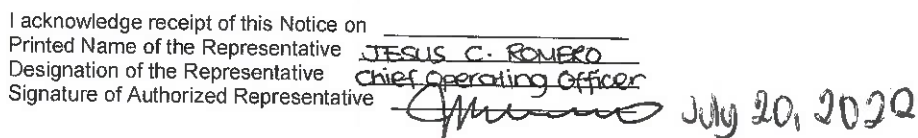 I acknowledge receipt of this Notice on
Printed Name of the Representative JESUS C. ROMERO
Designation of the Representative Chief Operating Officer
Signature of Authorized Representative
July 20, 2022